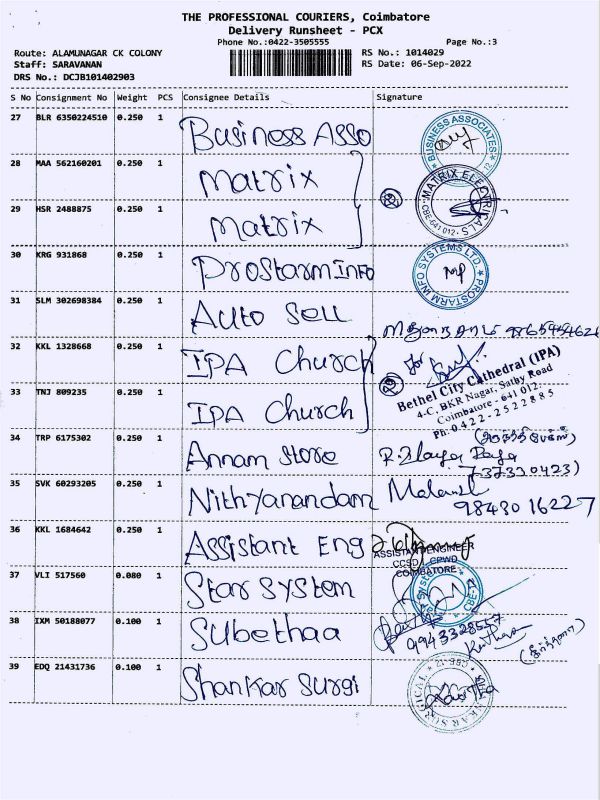 THE PROFESSIONAL COURIERS, Coimbatore
Delivery Runsheet - PCX
Phone No.:0422-3505555 Page No.:3
Route: ALAMUNAGAR CK COLONY RS No.: 1014029
Staff: SARAVANAN RS Date: 06-Sep-2022
DRS No.: DCJB101402903
S No Consignment No Weight PCS Consignee Details Signature
27 BLR 6350224510 0.250 1 Business Asso BUSINESS ASSOCIATES
28 MAA 562160201 0.250 1 Matrix MATRIX ELECTRICALS CBE-641 012.
29 HSR 2488875 0.250 1 Matrix
30 KRG 931868 0.250 1 Prostarm Info PROSTARM INFO SYSTEMS LTD.
31 SLM 302698384 0.250 1 Auto Sell
32 KKL 1328668 0.250 1 IPA Church for
33 TNJ 809235 0.250 1 IPA Church
Bethel City Cathedral (IPA)
4-C, BKR Nagar, Sathy Road
Coimbatore - 641 012.
Ph: 0422-2522885
34 TRP 6175302 0.250 1 Annam Store
35 SVK 60293205 0.250 1 Nithyanandam 98430 16227
36 KKL 1684642 0.250 1 Assistant Eng
ASSISTANT ENGINEER
CCSD, CPWD
COIMBATORE
37 VLI 517560 0.080 1 Star System
38 IXM 50188077 0.100 1 Subethaa 9943328557
39 EDQ 21431736 0.100 1 Shankar Surgi